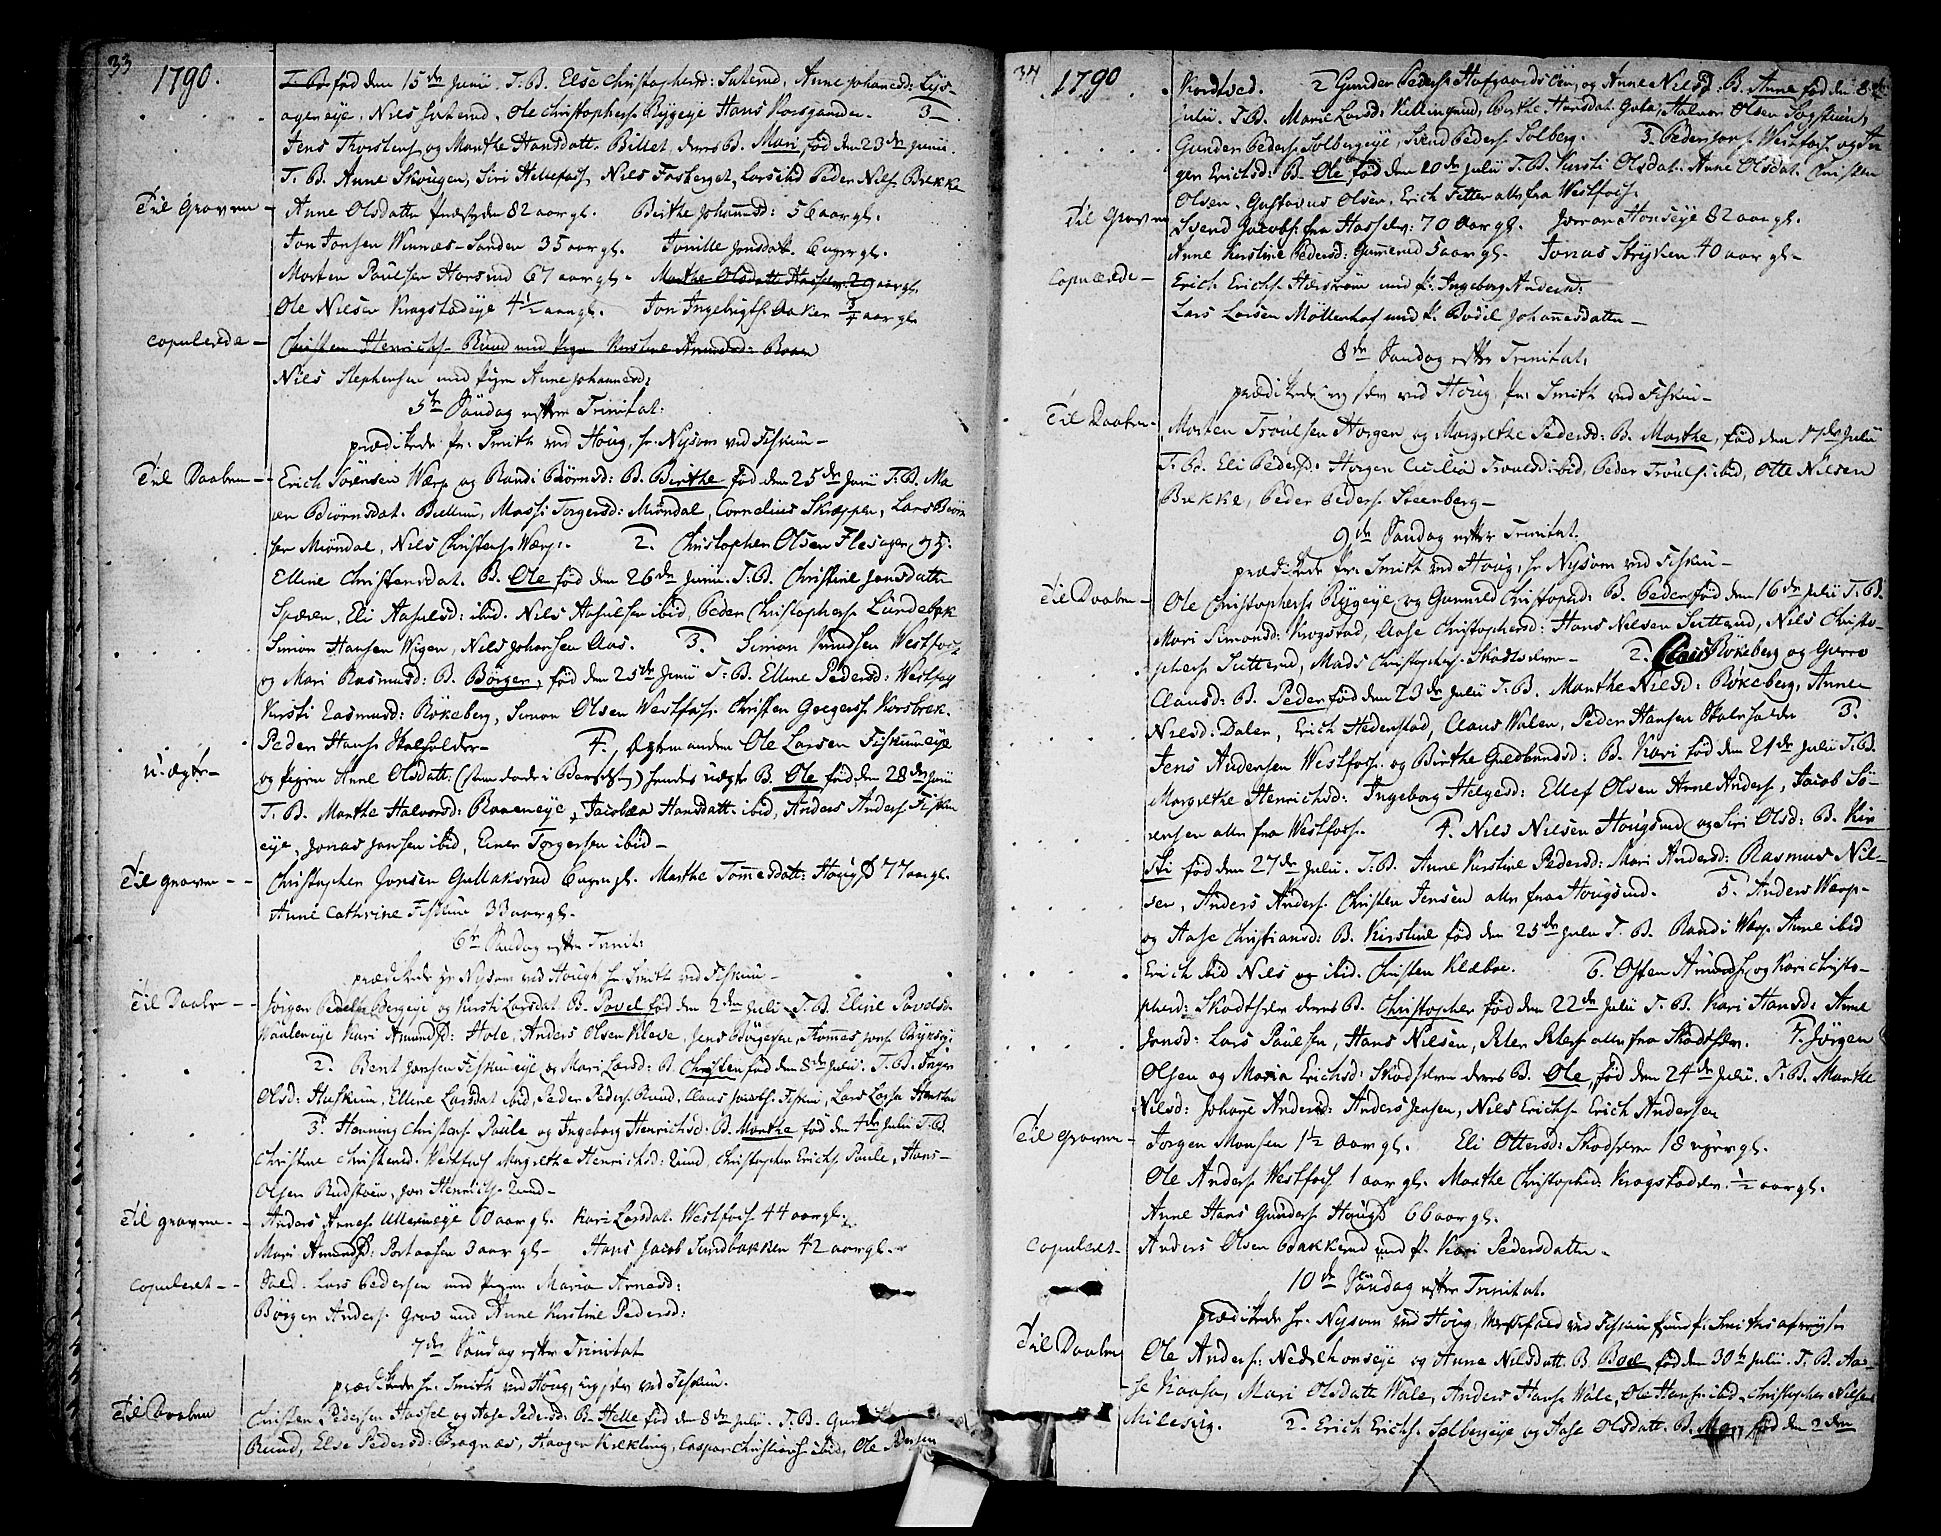 33
1790.
T. B. fød den 15de Junii. T. B. Else Christophersd: Suterud, Anne Johannesd: Lys-
agerøye, Nils Suterud, Ole Christophers. Bøygeye Hans Korsgaarden. 3
Jens Thorstens. og Marthe Hansdatt. Billet, deres B. Mari, fød den 23de Junii.
T. B. Anne Skougen, Siri Hellefoss, Niels Fosberget, Lars ibid Peder Nils. Bække
Til Graven - Anne Olsdatter 82 aar gl. Birthe Johannesd: 56 aar gl.
Jon Jonsen Winnæs-Sanden 35 aar gl. Tonille Jonsdatt. 6 uger gl.
Morten Paulsen Horsrud 67 aar gl. Marthe Olsdatt: 29 aar gl.
Ole Nilsen Krogstadeye 4½ aar gl. Jon Ingebrigts. Aaker ¾ aar gl.
copulerede - Christen Henrichs. Ruud med Pigen Kirstine Amundsd: Baan
Niels Stephensen med Pigen Anne Johannesd:
5te Søndag efter Trinitat:
prædikede Hr. Smith ved Houg, Hr. Nysom ved Fiskum -
Til Daaben - Erich Sørensen Værp og Randi Biørnsd: B. Birthe fød den 25de Junii T. B. Ma
ren Biørnsdat. Bellum, Mass: Torgersd: Miøndal, Cornelius Skræppen, Lars Biørn
sen Miøndal, Nils Christens. Værp. 2. Christopher Olsen Flesager, og
Elline Christensdat. B. Ole fød den 26de Junii. T. B. Christine Jonsdatter
Spæren, Eli Aaselsd: ibid. Niels Aasulsen ibid, Peder Christophers. Lundebak
Simon Hansen Wigen, Niels Johansen Aas. 3. Simon Knudsen Westfos
og Mari Rasmusd: B. Børger, fød den 25de Junii T. B. Elline Pedersd: Westfos
Kirsti Rasmusd: Røkeberg, Simon Olsen Westfos. Christen Gregers. Korsbræk.
Peder Hans. Skalholder - 4, Ægtemanden Ole Larsen Fiskumeye
u. ægte - og Pigen Anne Olsdatt: hendes uægte B. Ole fød den 28de Junii
T. B. Marthe Halvorsd: Raaeneye, Jacobæa Hansdatt. ibid, Anders Anders. Fiskum
eye, Jonas Jansen ibid, Einer Torgersen ibid -
Til graven - Christopher Jonsen Gullaksrud 6 uger gl. Marthe Tommesdatt: Hougs. 77 aar gl.
Anne Cathrine Fiskum 33 aar gl.
6te Søndag efter Trinit:
prædikede Hr Nysom ved Hough Hr Smith ved Fiskum -
Til Daaben - Jørgen Bergeye og Kirsti Larsdat B. Povel fød den 2den Julii T. B. Eline Povelsd.
Kari Amundsd: Hole, Anders Olsen Kleve, Jens Børgersen, Tommes Jons.
2. Bent Jansen Fiskumeye og Mari Larsd: B. Christen fød den 8de Julii. T. B. Inger
Olsd: Fiskum, Elline Larsdat ibid, Peder Peders. Ruud, Claus Jacobs. Fiskum, Lars Larsen
3. Henning Christens. Paule og Ingeborg Henrichsd: B. Marthe fød den 4de Julii T. B.
Christine Christensd. Westfos Magrethe Henrichsd: Ruud, Christopher Erichs. Paule, Hans
Olsen Rudstøen, Jon Henrichs. Ruud -
Til graven - Anders Arnes. Ullerneye 60 aar gl. Kari Larsdat. Westfos 44 aar gl.
Mari Amundsd: Portaasen 3 aar gl - Hans Jacob Sundbakken 42 aar gl.
copuleret - Sold. Lars Pedersen med Pigen Maria Arnesd:
Børger Anders. Grov med Anne Kirstine Pedersd:
7de Søndag efter Trinitat
prædikede Hr. Smith ved Houg, ingen ved Fiskum.
Til Daaben Christen Pedersen Hassel og Aase Pedersd: B. Helle fød den 8de Julii. T. B.
Ruud, Else Pedersd: Bragnæs, Haagen Krekling, Caspar Christians. ibid, Ole Pedersen
34
1790
Nordtved. 2 Gunder Peders. og Anne Nilsd: B. Anne fød den 8de
Julii. T. B. Marie Larsd: Killingrud, Birthe Hansdat. Halvor Olsen Sogstuen,
Gunder Peders. Solbergeye, Svend Peders. Solberg. 3 Peder Lars. Westfos og In
ger Erichsd: B. Ole fød den 20de Julii T. B. Kirsti Olsdat. Anne Olsdat. Christen
Olsen, Gustavus Olsen, Erich alle fra Westfos.
Til graven Svend Jacobs. fra Hasselv: 70 aar gl. Jørran Honseye 82 aar gl.
Anne Kirstine Pedersd: Gunnerud 5 aar gl. Jonas Stryken 40 aar gl -
copulerede - Erich Erichs. Hærstrøm med P. Ingeborg Andersd:
Lars Larsen Møllenhof med P. Bodil Johannesdatter -
8de Søndag efter Trinitat.
prædikede ingen ved Houg, Hr. Smith ved Fiskum -
Til Daaben - Morten Troulsen Horgen og Margrethe Pedersd: B. Marthe, fød den 17de Julii
T. B. Eli Pedersd. Horgen Cicilia Troulsd: ibid, Peder Trouls. ibid, Otte Nilsen
Bække, Peder Peders. Steenberg -
9de Søndag efter Trinitat.
prædikede Hr. Smith ved Houg, Hr Nysom ved Fiskum -
Til Daaben - Ole Christophers. Rygeye og Gunnild Christophd: B. Peder fød den 16de Julii T. B.
Mari Simonsd: Krogstad, Aase Christophersd: Hans Nilsen Sutterud, Nils Christo-
phers. Sutterud, Mads Christophers. Skodtselven - 2. Claus Røkeberg og Gurro
Clausd: B. Peder fød den 23de Julii T. B. Marthe Nilsd: Røkeberg, Anne
Nilsd: Dalen, Erich Hedenstad, Claus Walen, Peder Hansen Skaleholder 3.
Jens Andersen Westfos. og Birthe Guldbrandsd: B. Kari fød den 21de Julii T. B.
Margrethe Henrichsd: Ingeborg Helgesd: Ellef Olsen Arne Anders, Jacob Sø-
rensen alle fra Westfos. 4. Nils Nilsen Hougsrud og Siri Olsd: B. Kir
sti fød den 27de Julii. T. B. Anne Kirstine Pedersd: Mari Andersd: Rasmus Nil-
sen, Anders Anders. Christen Jensen alle fra Hougsrud. 5. Anders Værp
og Aase Christiansd: B. Kirstine fød den 25de Julii T. B. Randi Værp Anne ibid
Erich ibid Niels og ibid. Christen Klæboe. 6. Osten Amunds. og Kari Christo-
phersd: Skodtselv deres B. Christopher fød den 22de Julii T. B. Kari Hansd: Anne
Jonsd: Lars Paulsen, Hans Nilsen, Peter Peters. alle fra Skodtselv. 7. Jørgen
Olsen og Maria Erichsd: Skodselven deres B. Ole, fød den 24de Julii. T. B. Marthe
Nilsd: Johanne Andersd: Anders Jensen, Nils Erichs. Erich Andersen
Til graven - Jørgen Monsen 1½ aar gl. Eli Ottersd: Skodselven 18 uger gl.
Ole Anders. Westfos 1 aar gl. Marthe Christophersd. Krogstadelv. ½ aar gl.
Anne Hans Gunders. Hougsr 66 aar gl.
copuleret - Anders Olsen Bakkerud med P. Kari Pedersdatter -
10de Søndag efter Trinitat.
prædikede Hr. Nysom ved Houg, Messefald ved Fiskum formed. Hr. Smiths afreyse
Til Daaben Ole Anders. Nedrehonseye og Anne Nilsdatt. B. Boel fød den 30te Julii. T. B. Aa-
se Kaasa, Mari Olsdatt Wale, Anders Hans. Wale, Ole Hans. ibid, Christopher Nilsen
Milesvig. 2. Erich Erichs. Solbergeye og Aase Olsdatt. B. Mari fød den 2den